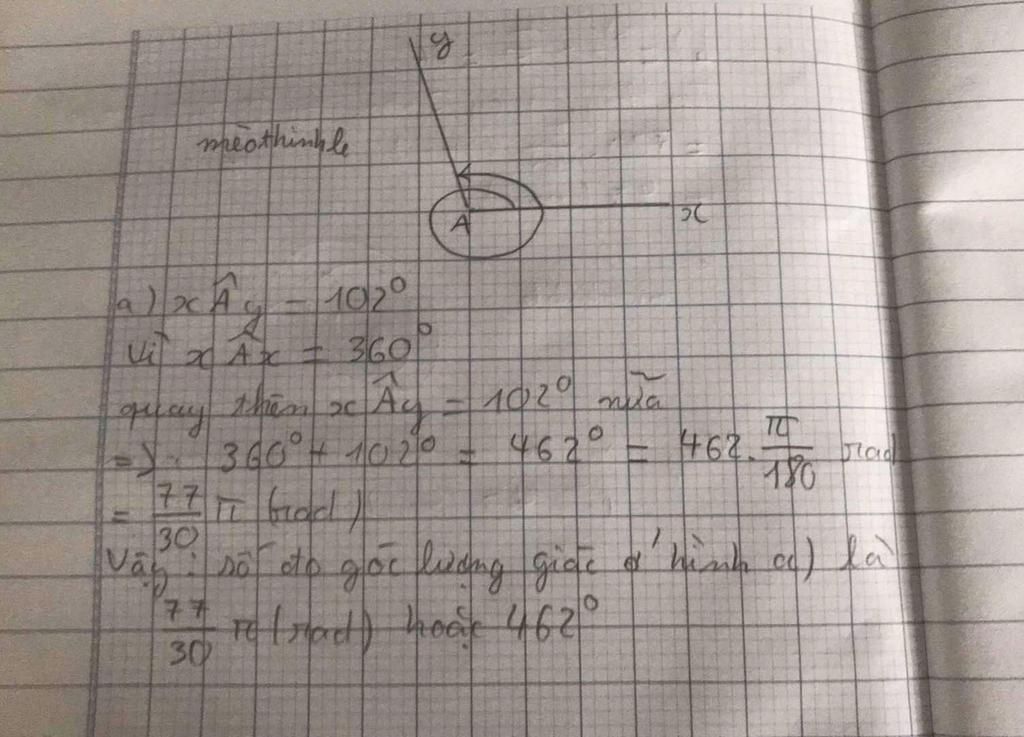 y
mèothinhle
A
x
a) xÂy = 102°
Vì xÂx = 360°
quay thêm xÂy = 102° nữa
=> 360° + 102° = 462° = 462. π/180 rad
= 77/30 π (rad)
Vậy: số đo góc lượng giác ở hình a) là
77/30 π (rad) hoặc 462°